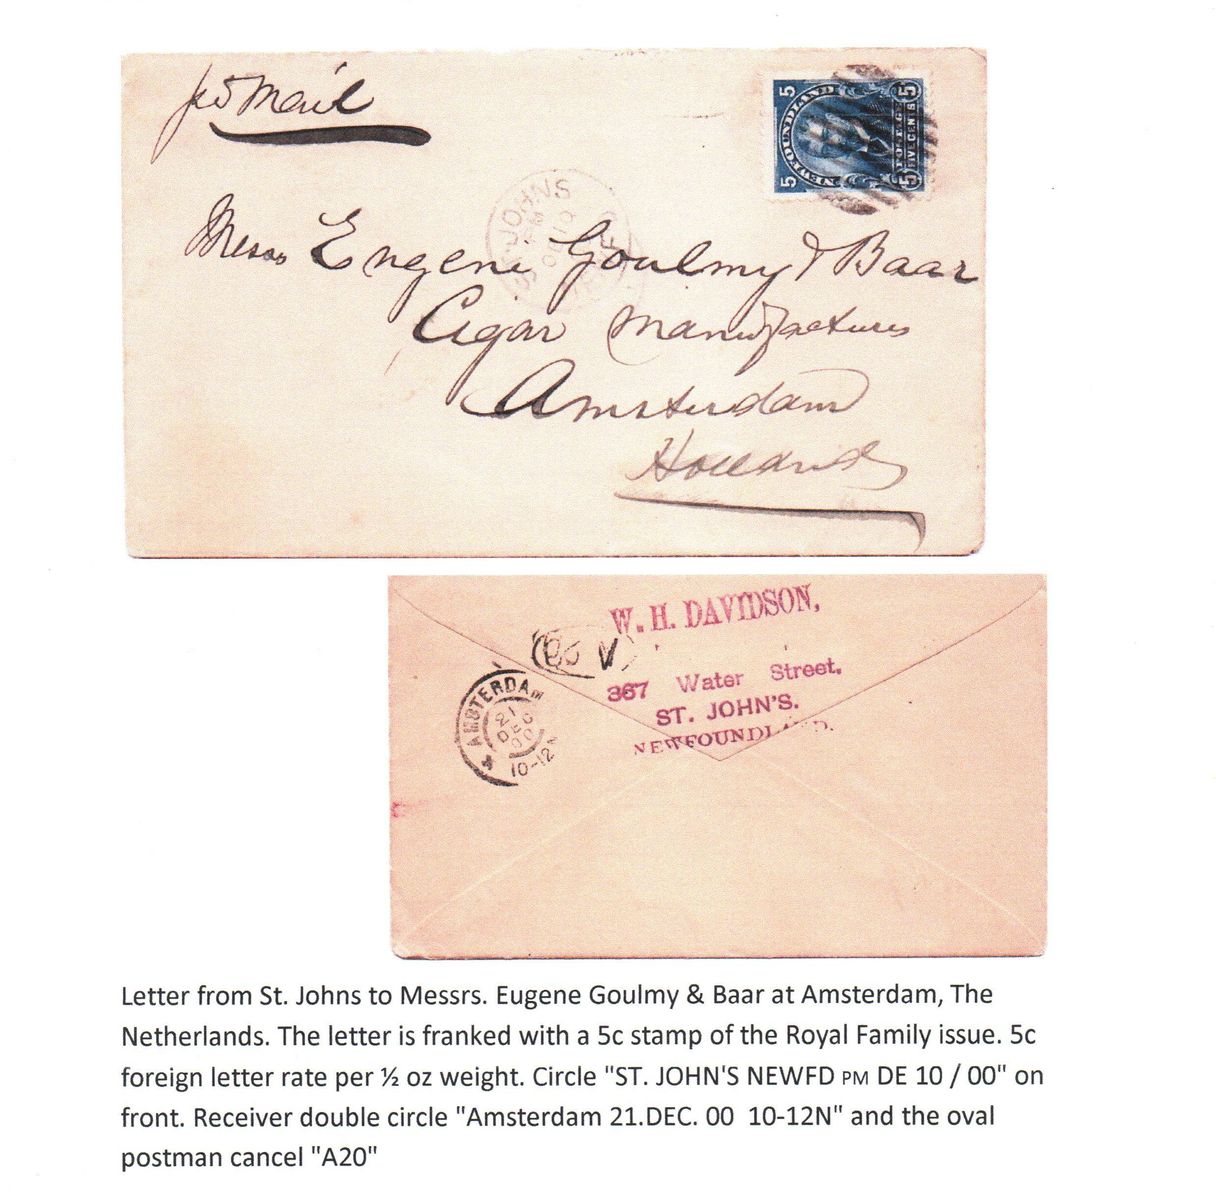 per Mail
5 NEWFOUNDLAND 5
POSTAGE
5 FIVE CENTS 5
ST. JOHNS
PM
10
Messrs Eugene Goulmy & Baar
Cigar Manufacturers
Amsterdam
Holland
W. H. DAVIDSON,
367 Water Street,
ST. JOHN'S.
NEWFOUNDLAND.
AMSTERDAM
21
DEC
00
10-12N
Letter from St. Johns to Messrs. Eugene Goulmy & Baar at Amsterdam, The
Netherlands. The letter is franked with a 5c stamp of the Royal Family issue. 5c
foreign letter rate per ½ oz weight. Circle "ST. JOHN'S NEWFD PM DE 10 / 00" on
front. Receiver double circle "Amsterdam 21.DEC. 00 10-12N" and the oval
postman cancel "A20"